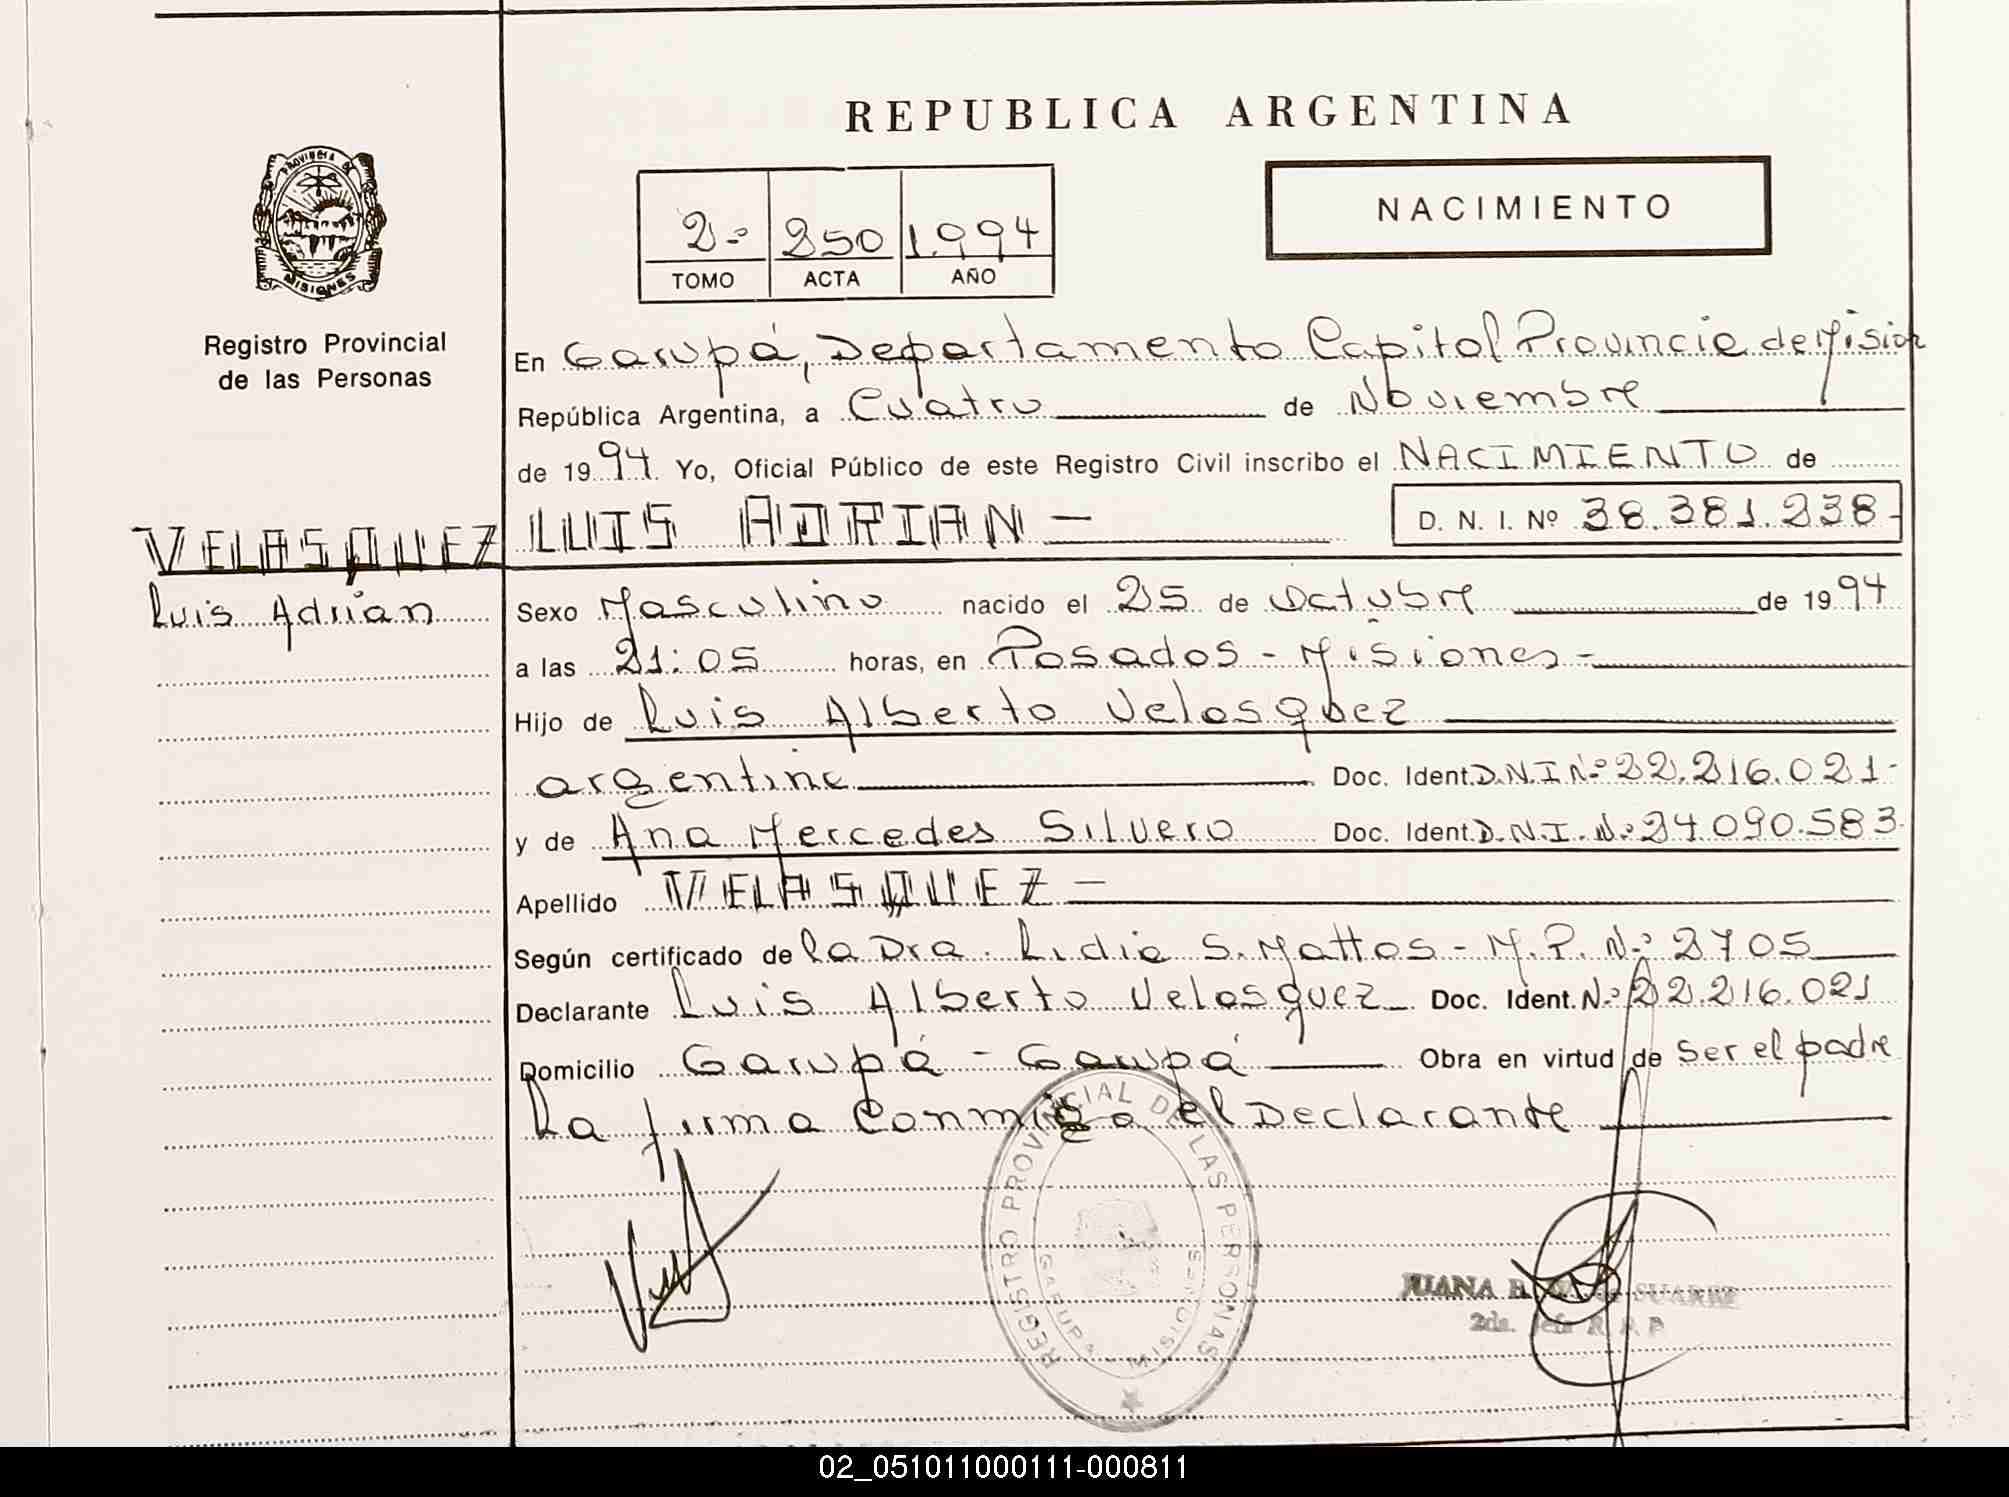 REPUBLICA ARGENTINA
PROVINCIA DE
MISIONES
Registro Provincial
de las Personas
2-º 250 1.994
TOMO ACTA AÑO
NACIMIENTO
En Garupá, Departamento Capital Provincia de Mision
República Argentina, a Cuatro de Noviembre
de 1994 Yo, Oficial Público de este Registro Civil inscribo el NACIMIENTO de
VELASQUEZ LUIS ADRIAN - D. N. I. Nº 38.381.238-
Luis Adrian
Sexo Masculino nacido el 25 de Octubre de 1994
a las 21:05 horas, en Posadas - Misiones -
Hijo de Luis Alberto Velasquez
argentino Doc. Ident. D.N.I Nº 22.216.021-
y de Ana Mercedes Silvero Doc. Ident. D.N.I. Nº 24.090.583
Apellido VELASQUEZ -
Según certificado de la Dra. Lidia S. Mattos - M.P. Nº 2705
Declarante Luis Alberto Velasquez Doc. Ident. Nº 22.216.021
Domicilio Garupá - Garupá Obra en virtud de Ser el padre
La firma Conmigo el Declarante
REGISTRO PROVINCIAL DE LAS PERSONAS
GARUPA - MISIONES
JUANA SUAREZ
2da. Jefe R. P. P
02_051011000111-000811